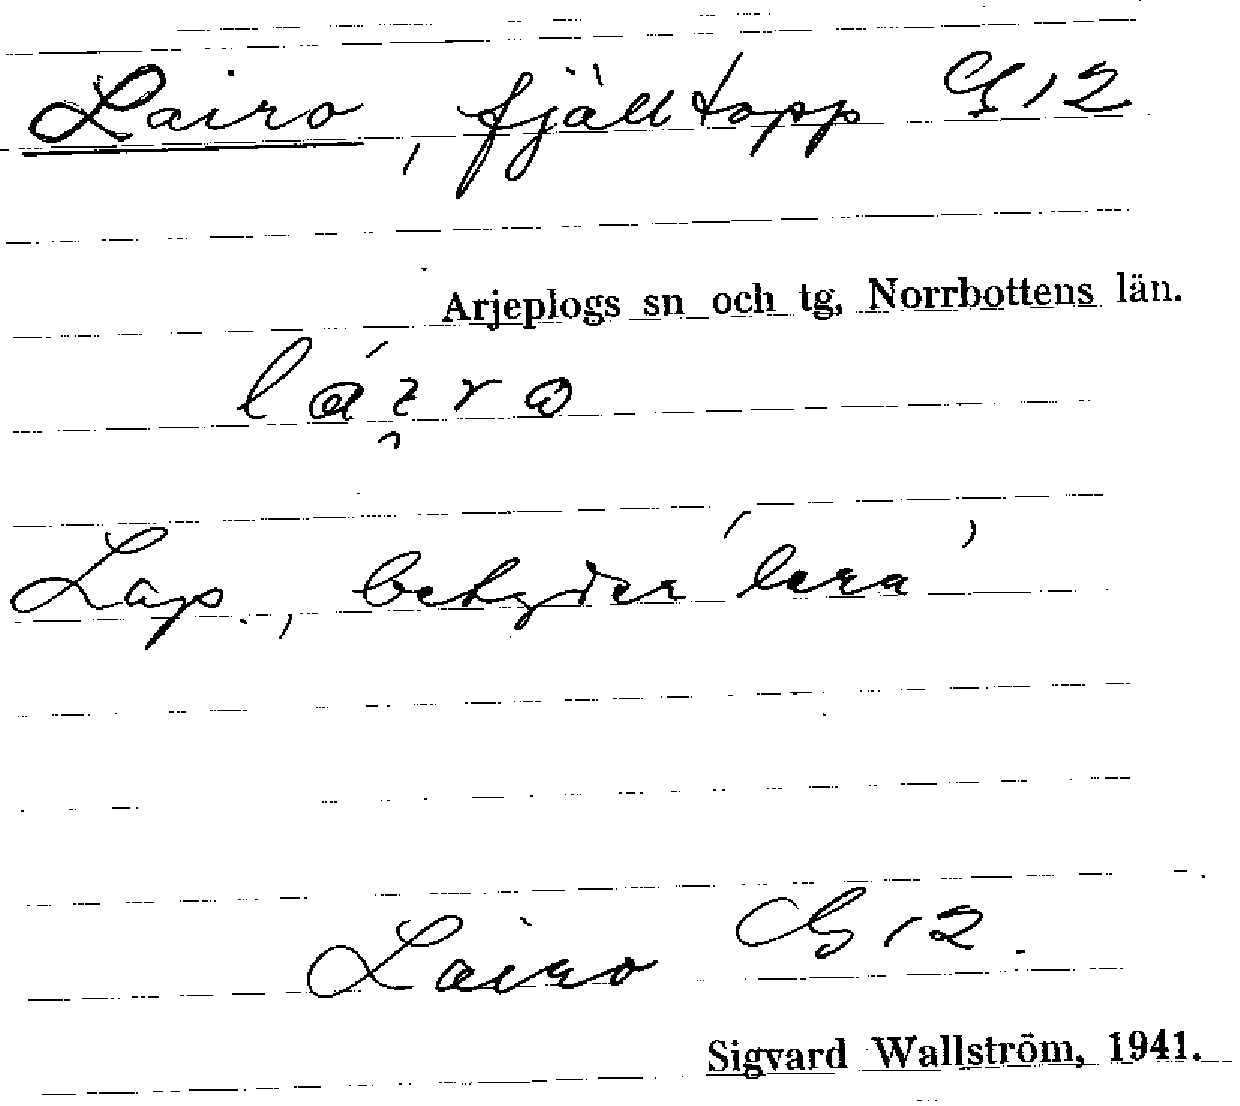 Lairo, fjälltopp G 12
Arjeplogs sn och tg, Norrbottens län.
Lap., betyder 'lera'
Lairo G 12.
Sigvard Wallström, 1941.